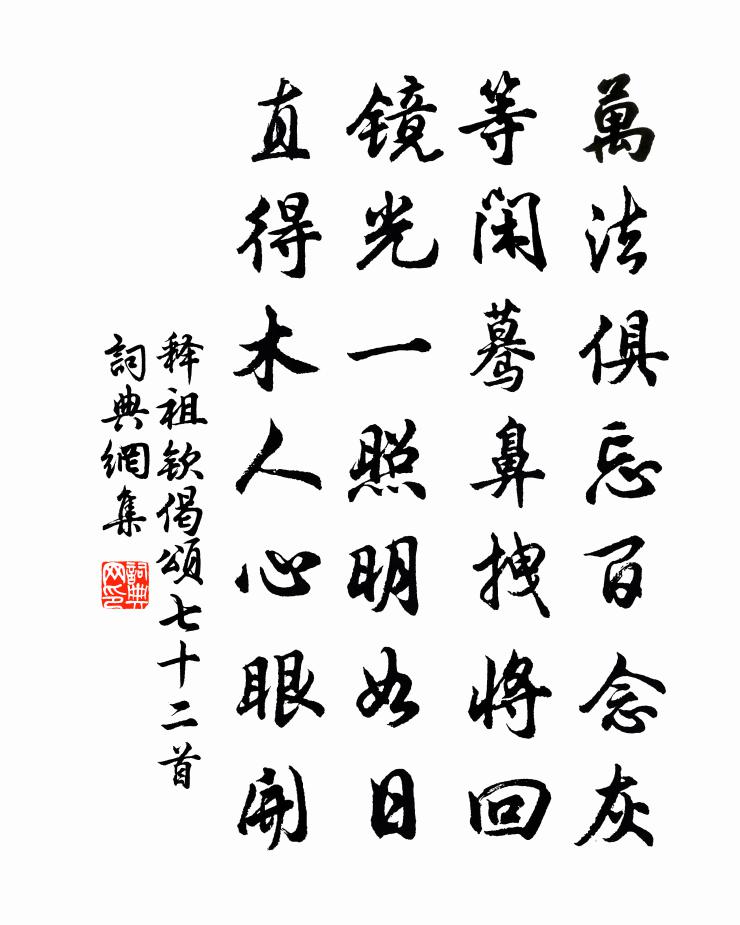 萬法俱忘百念灰
等閑驀鼻拽將回
镜光一照明如日
直得木人心眼開
释祖钦偈頌七十二首
詞典網集
詞典网印